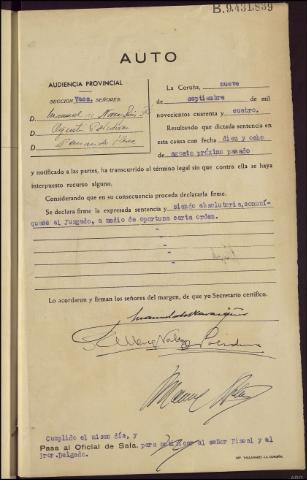 B.9.431.839
AUTO
AUDIENCIA PROVINCIAL
SECCION Vaca. SEÑORES
D.
D.
D.
La Coruña, nueve
de septiembre de mil
novecientos cuarenta y
cuatro.
Resultando que dictada sentencia en
esta causa con fecha diez y ocho
de agosto próximo pasado
y notificado a las partes, ha transcurrido el término legal sin que contra ella se haya
interpuesto recurso alguno.
Considerando que en su consecuencia procede declararla firme.
Se declara firme la expresada sentencia y siendo absolutoria, comuní-
quese al Juzgado, a medio de oportuna carta orden.
Lo acordaron y firman los señores del margen, de que yo Secretario certifico.
Cumplido el mismo día, y
Pasa al Oficial de Sala, para notificar al señor Fiscal y al
IMP. VALLADARES-LA CORUÑA